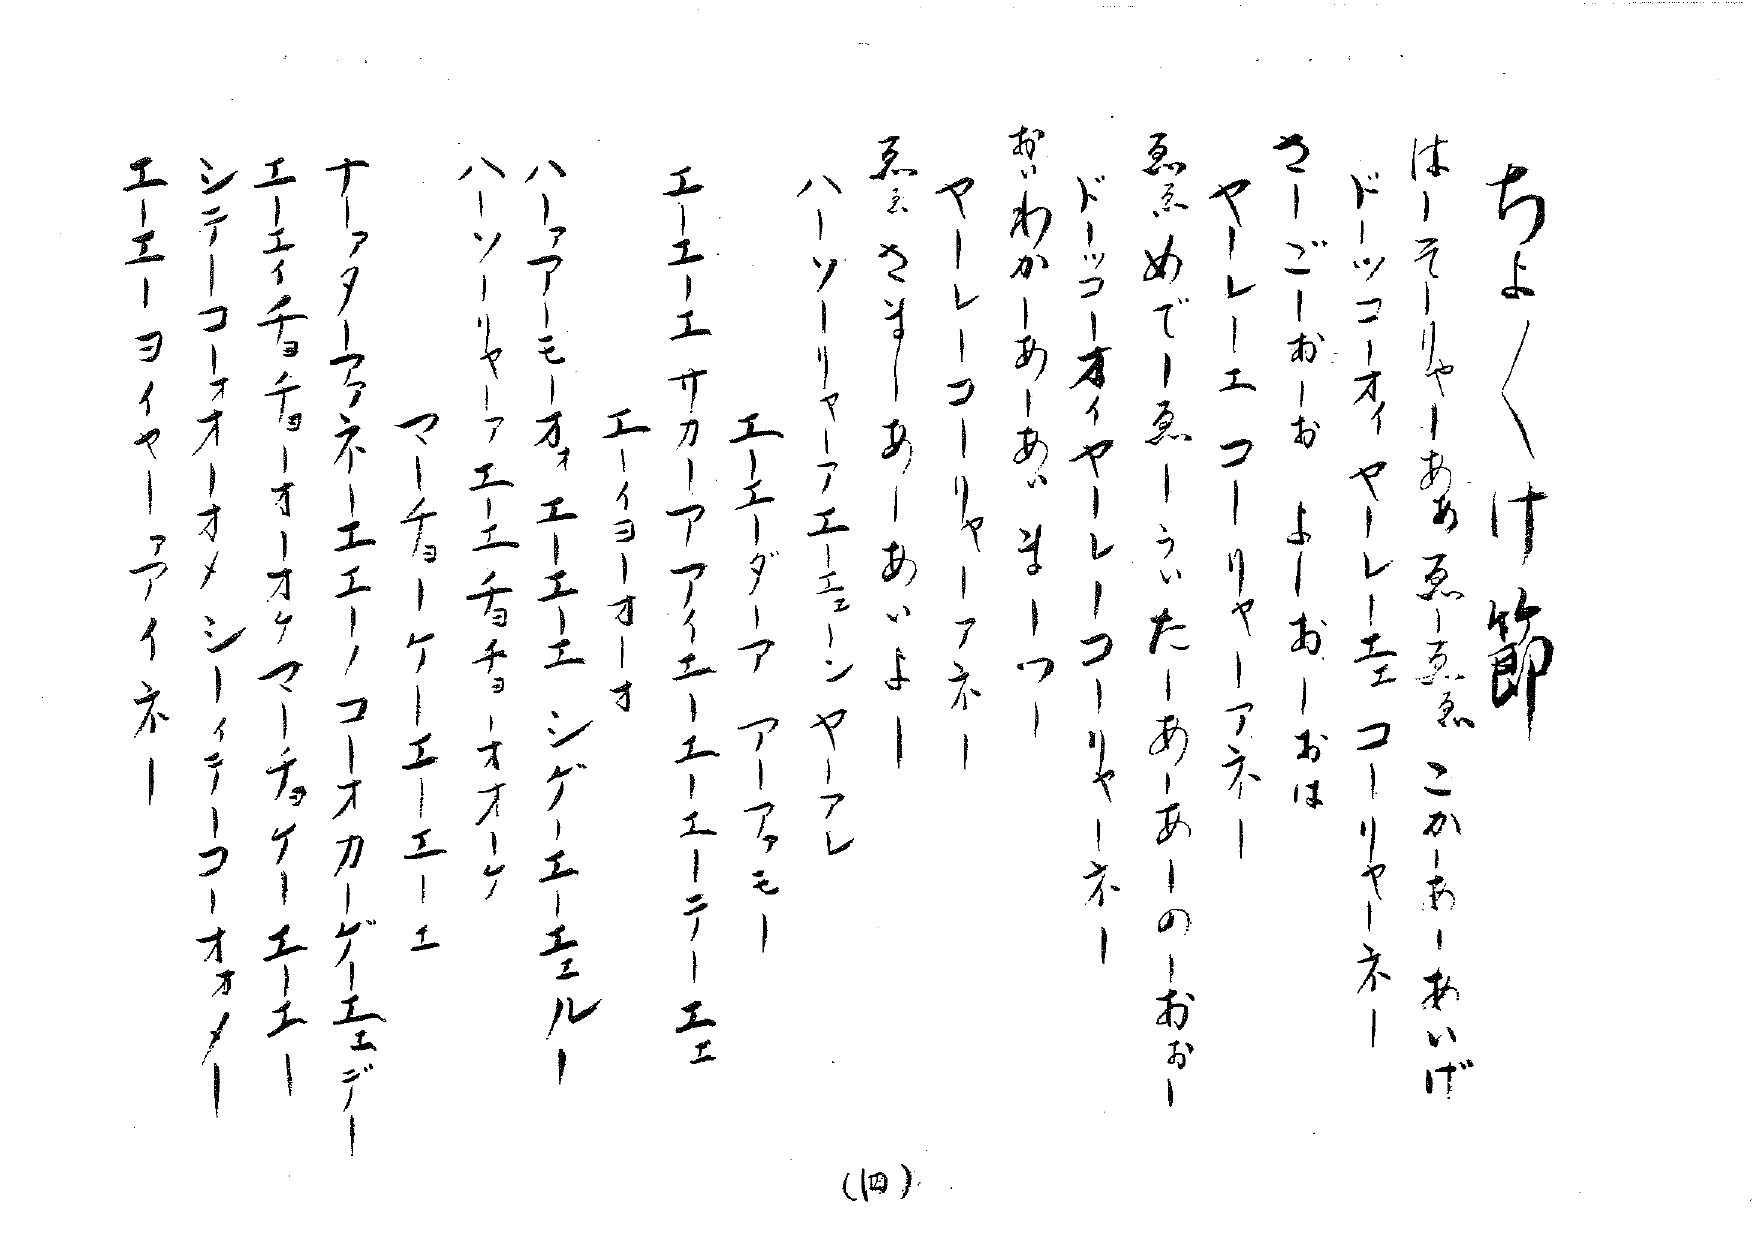 ちよ〱け節
はーそーりゃーあぁゑーゑゑゑこかーあーあいげ
ドーッコーオィヤーレーエェコーリャーネー
さーごーおーおよーおーおは
ヤーレーエコーリャーアネー
ゑゑめでーゑーうぃたーあーあーのーおぉー
ドーッコーオィヤーレーコーリャーネー
おぃわかーあーあぃまーつー
ヤーレーコーリャーアネー
ゑゑさまーあーあいよー
ハーソーリャーアエーエェーンヤーアレ
エーエーダーアアーアァモー
エーエーエサカーアアィエーエーエーテーエェ
エーィヨーオーオ
ハーァアーモーオォエーエーエシゲーエーエェルー
ハーソーリャーァエーエチョチョーオオーケ
マーチョーケーエーエーエ
ナーァターアァネーエエーノコーオカーゲーエェデー
エーエィチョチョーオーオケマーチョケーエーエー
シテーコーォオーオメシーィテーコーオォメー
エーエーヨイヤーァアイネー
(四)